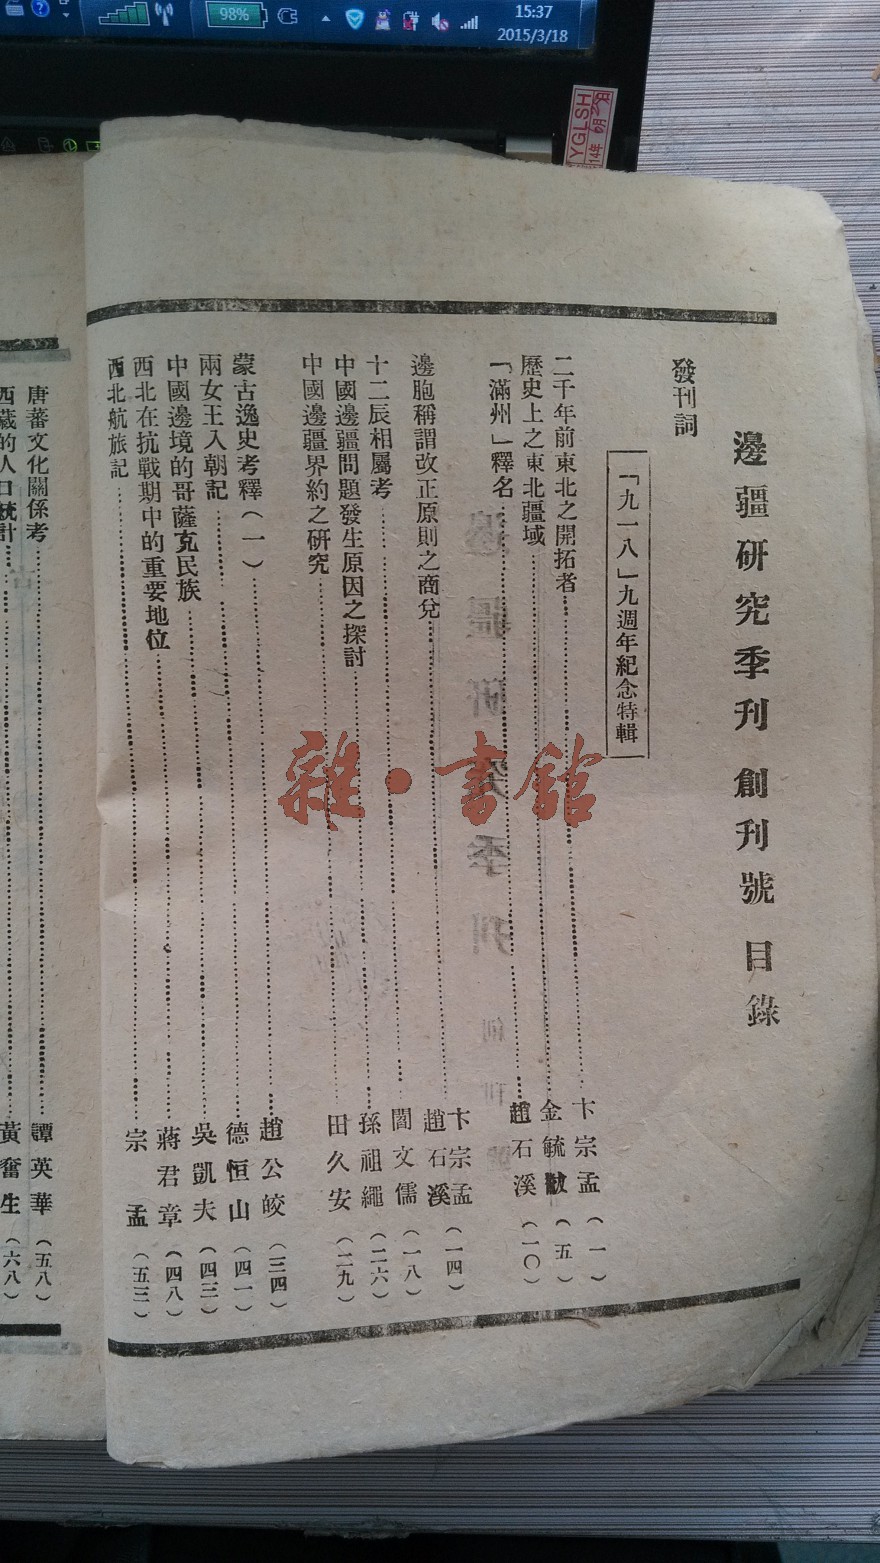 98%
15:37
2015/3/18
YGLSH
邊疆研究季刊 創刊號 目錄
發刊詞
「九一八」九週年紀念特輯
二千年前東北之開拓者 卞宗孟 (一)
歷史上之東北疆域 金毓黻 (五)
「滿州」釋名 趙石溪 (一〇)
邊胞稱謂改正原則之商兌 卞宗孟 趙石溪 (一四)
十二辰相屬考 閻文儒 (一八)
中國邊疆問題發生原因之探討 孫祖繩 (二六)
中國邊疆界約之研究 田久安 (二九)
蒙古逸史考釋(一) 趙公皎 (三四)
兩女王入朝記 德恒山 (四一)
中國邊境的哥薩克民族 吳凱夫 (四三)
西北在抗戰期中的重要地位 蔣君章 (四八)
西北航旅記 宗孟 (五三)
唐蕃文化關係考 譚英華 (五八)
西藏的人口統計 黃奮生 (六八)
雜·書館